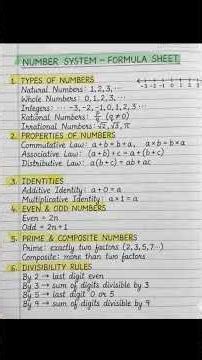 NUMBER SYSTEM – FORMULA SHEET
1. TYPES OF NUMBERS
-3 -2 -1 0 1 2 3
Natural Numbers: 1, 2, 3, ...
Whole Numbers: 0, 1, 2, 3, ...
Integers: ... -3, -2, -1, 0, 1, 2, 3 ...
Rational Numbers: (q ≠ 0)
Irrational Numbers: √2, √3, π
2. PROPERTIES OF NUMBERS
Commutative Law: a + b = b + a, a × b = b × a
Associative Law: (a + b) + c = a + (b + c)
Distributive Law: a(b + c) = ab + ac
3. IDENTITIES
Additive Identity: a + 0 = a
Multiplicative Identity: a × 1 = a
4. EVEN & ODD NUMBERS
Even = 2n
Odd = 2n + 1
5. PRIME & COMPOSITE NUMBERS
Prime: exactly two factors (2, 3, 5, 7...)
Composite: more than two factors
6. DIVISIBILITY RULES
By 2 → last digit even
By 3 → sum of digits divisible by 3
By 5 → last digit 0 or 5
By 9 → sum of digits divisible by 9